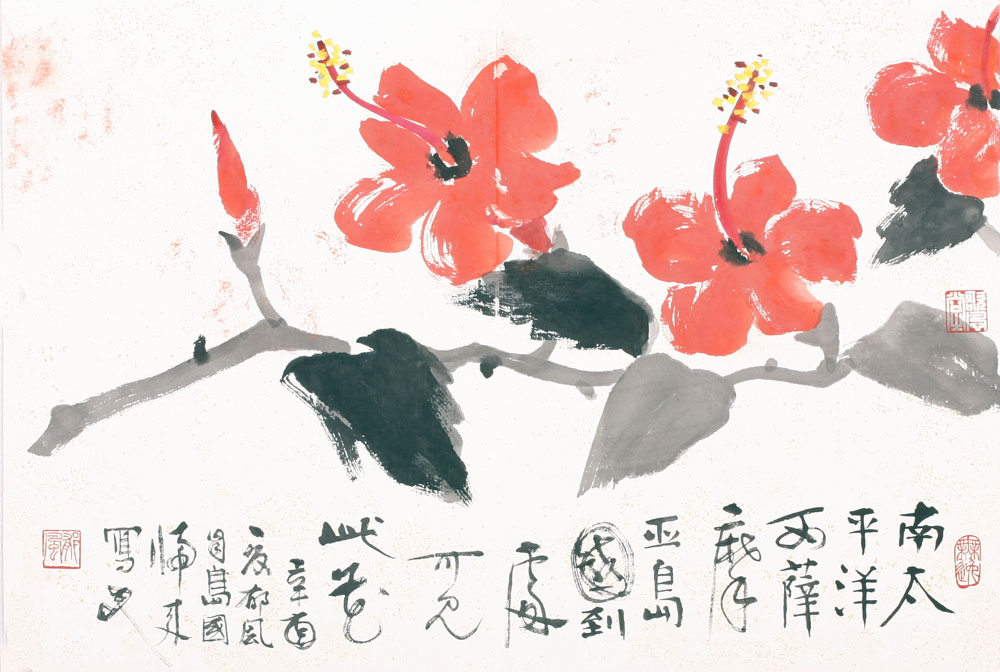 南太
平洋
西薩
摩
亚島
國到
處
可見
此花
辛酉
郁風
自島國
歸來
寫之
郁風